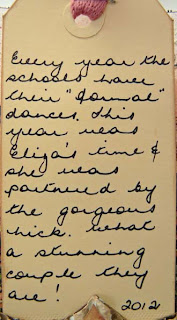 Every year the
schools have
their "formal"
dances. This
year was
Eliza's time &
she was
partnered by
the gorgeous
Nick. What
a stunning
couple they
are!
2012